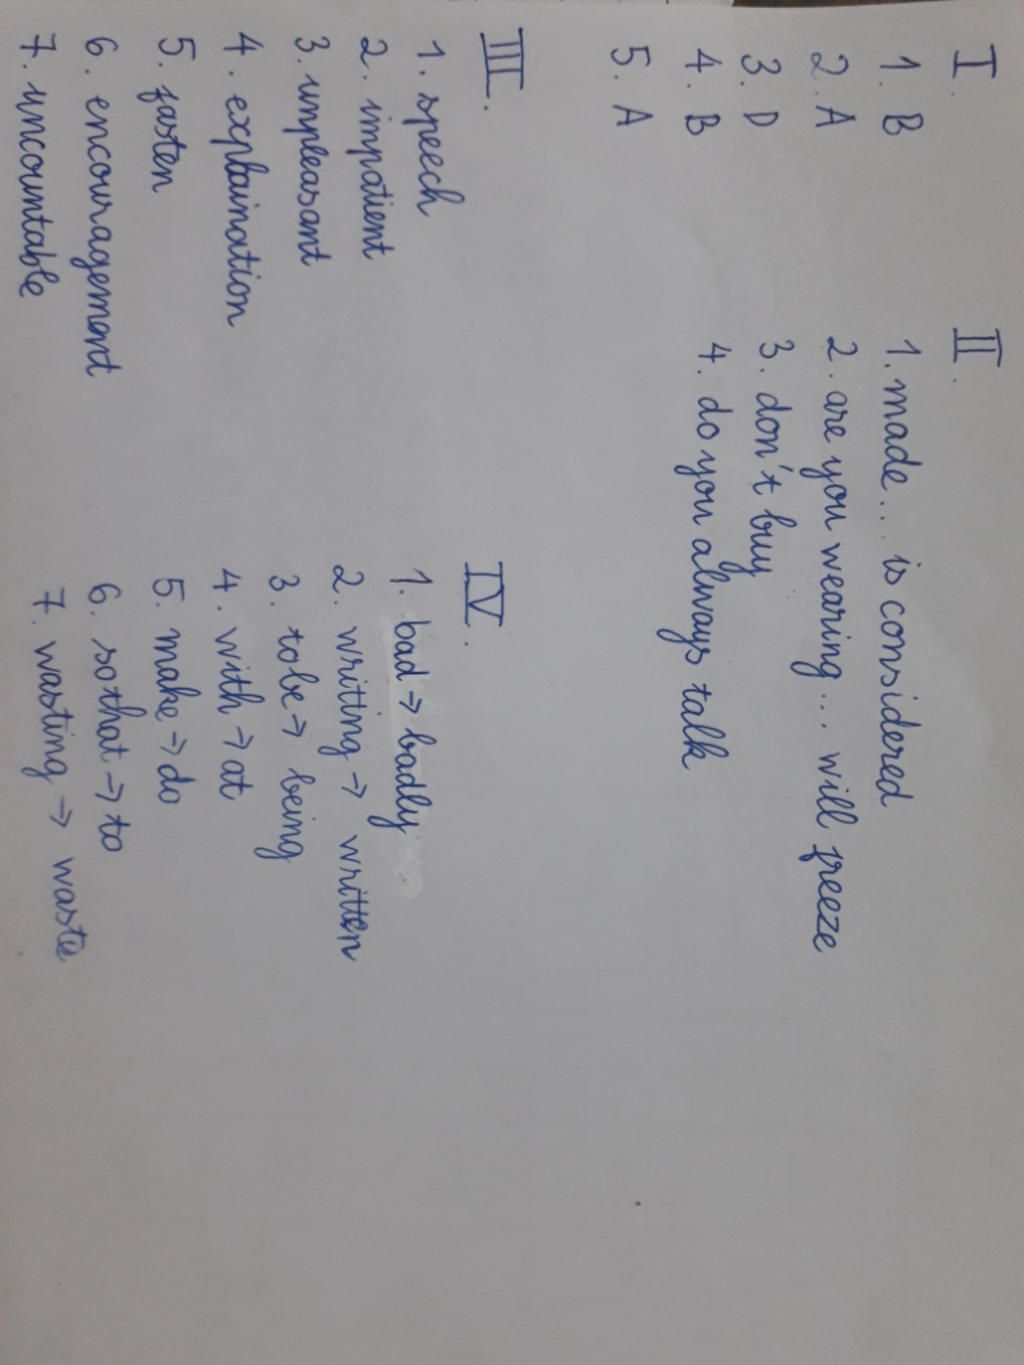 I.
1. B
2. A
3. D
4. B
5. A
II.
1. made... is considered
2. are you wearing... will freeze
3. don't buy
4. do you always talk
III.
1. speech
2. impatient
3. unpleasant
4. explaination
5. fasten
6. encouragement
7. uncountable
IV.
1. bad → badly
2. writting → written
3. to be → being
4. with → at
5. make → do
6. so that → to
7. wasting → waste